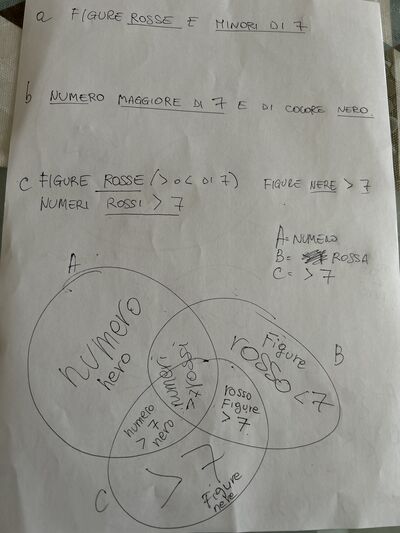 a FIGURE ROSSE E MINORI DI 7
b NUMERO MAGGIORE DI 7 E DI COLORE NERO.
C FIGURE ROSSE (> O < DI 7) FIGURE NERE > 7
NUMERI ROSSI > 7
A = NUMERO
B = ROSSA
C = > 7
A
numero
nero
numeri
rossi
> 7
Figure
rosso < 7
B
rosso
Figure
> 7
numero
> 7
nero
> 7
Figure
nere
C